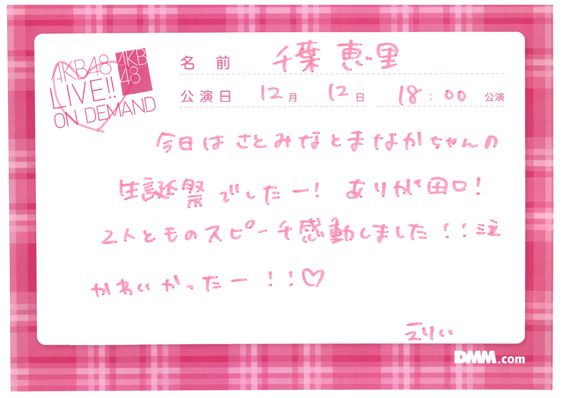 AKB48
LIVE!!
ON DEMAND
AKB
48
名前 千葉恵里
公演日 12月 12日 18:00 公演
今日はさとみなとまなかちゃんの
生誕祭でしたー! ありが田口!
2人とものスピーチ感動しました!!泣
かわいかったー!!♡
えりい
DMM.com